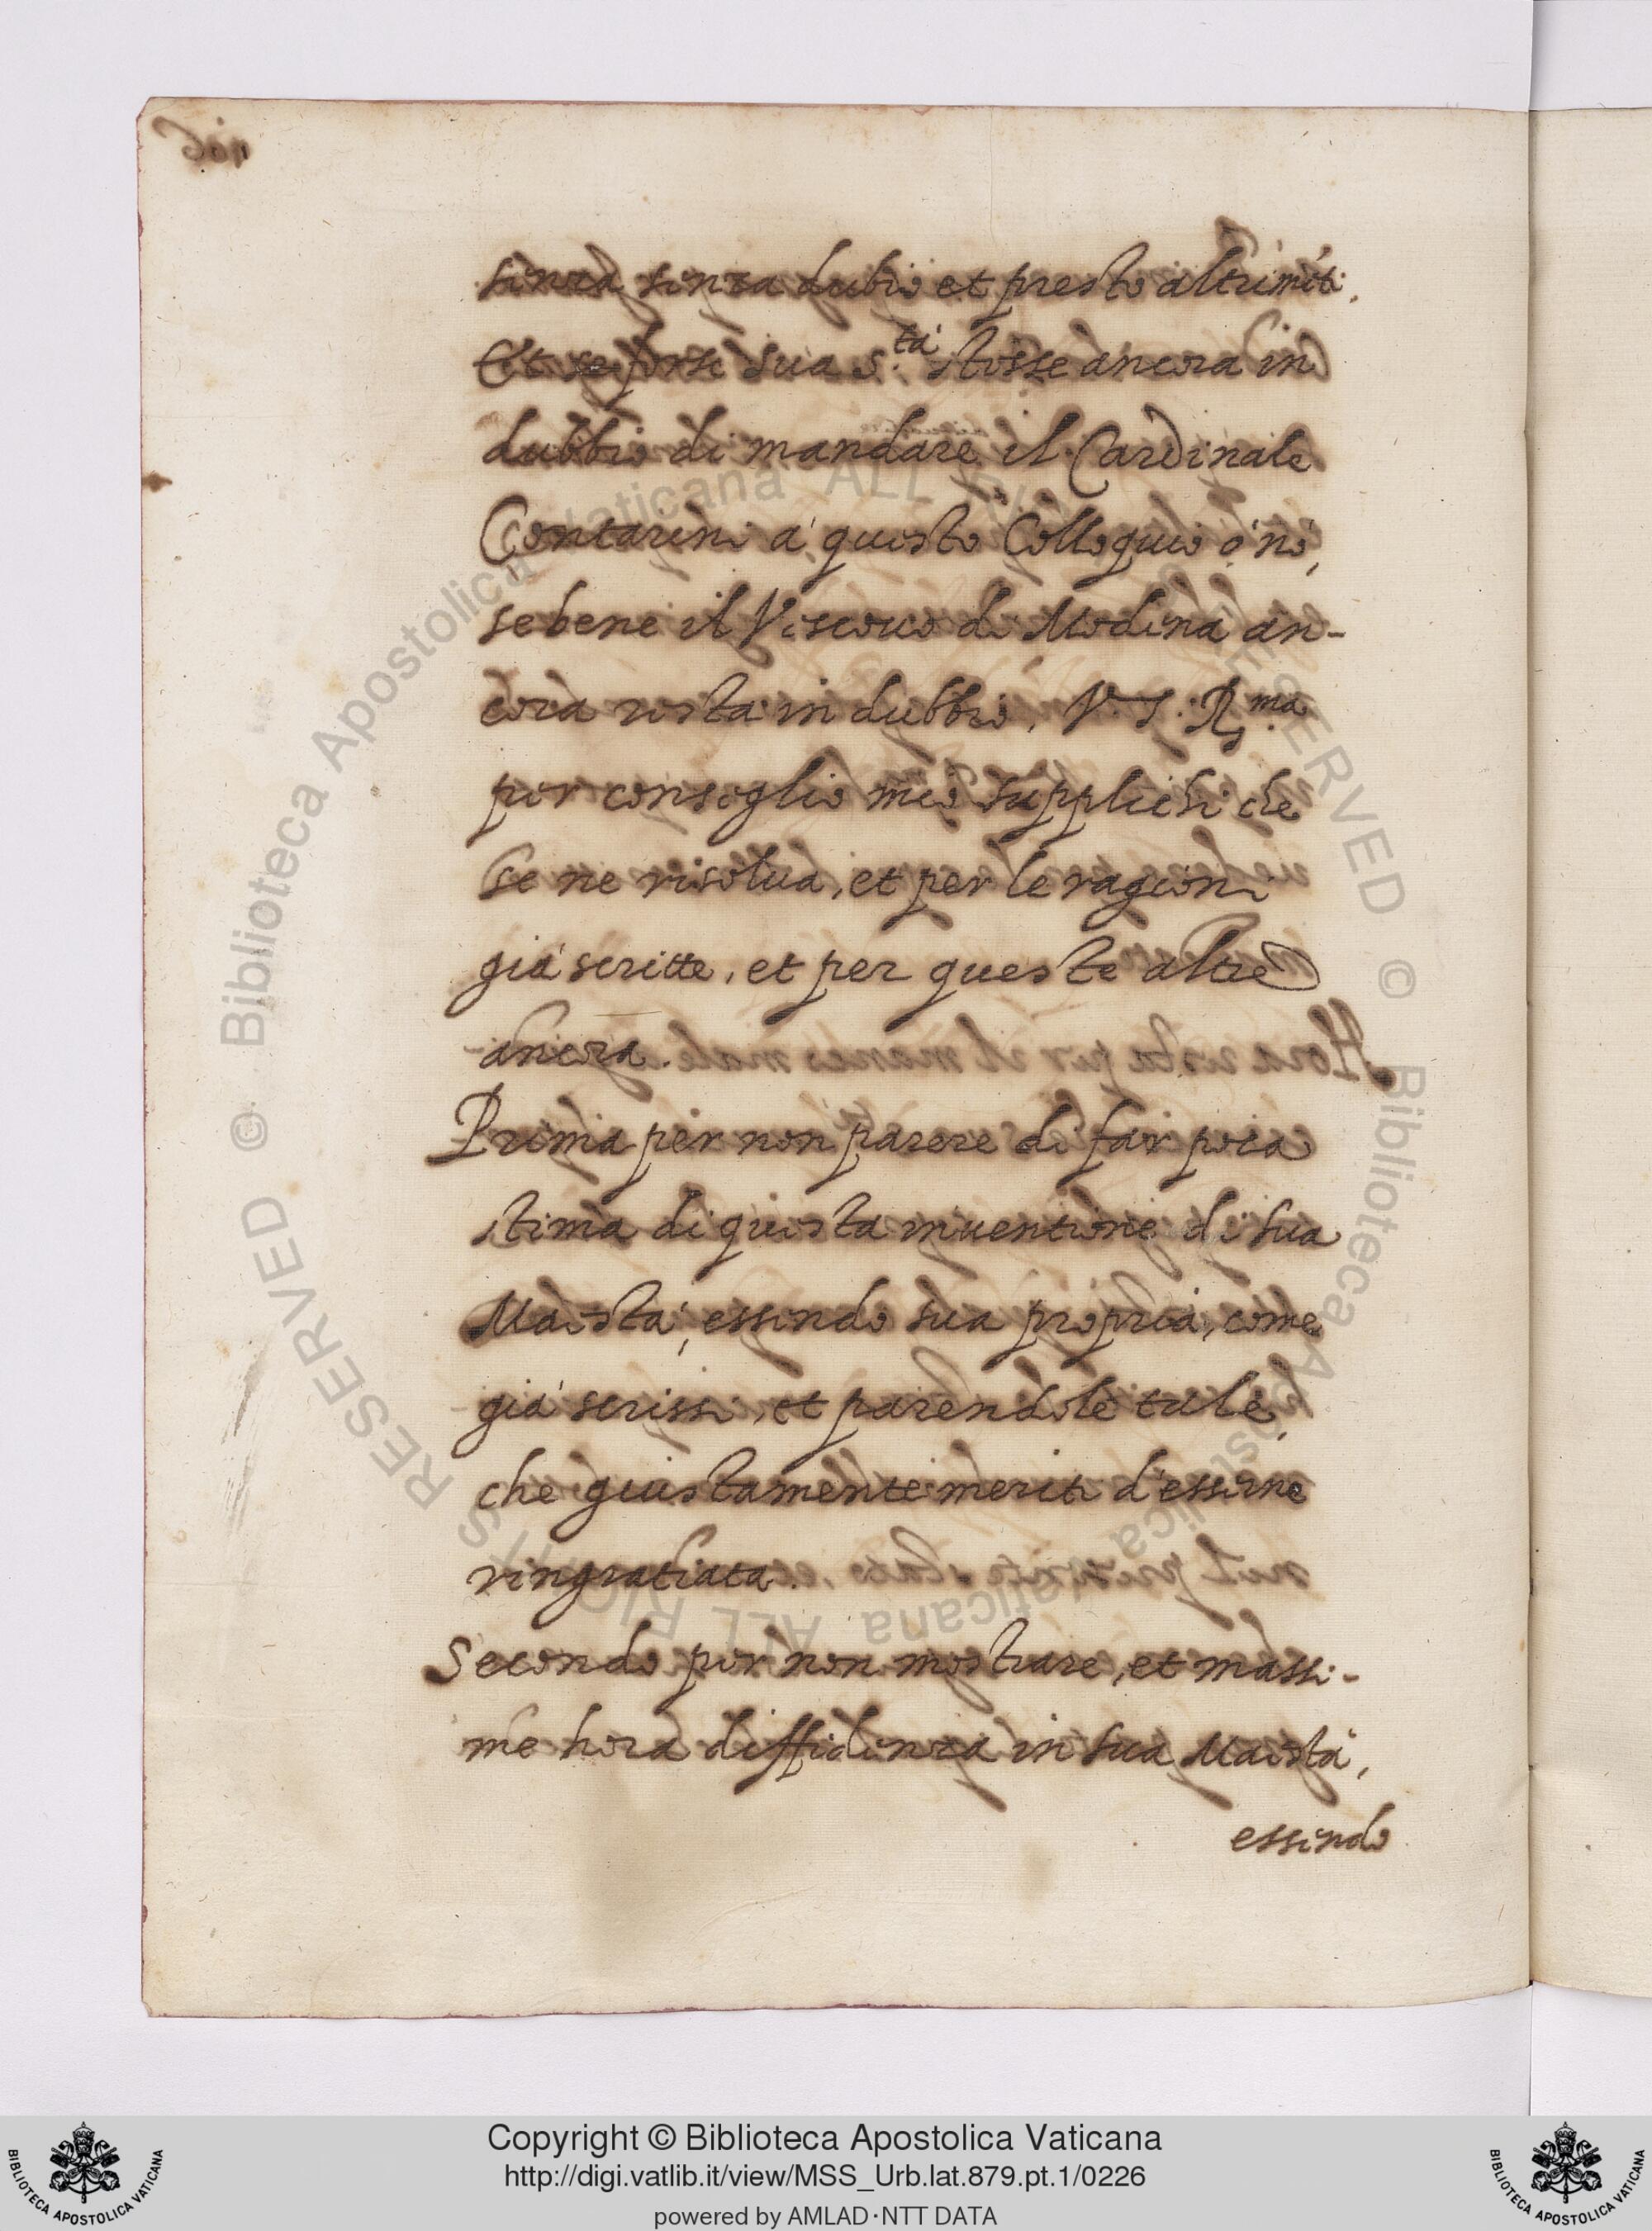 senza senza dubio et presto altrimēti.
Et se forse sua S.tà stesse ancora in
dubbio di mandare il Cardinale
Contareni à questo Colloquio ò nò,
sebene il Vescouo di Modena an-
cora resta in dubbio, V. S. R.ma
per conseglio mio supplichi che
se ne risolua, et per le ragioni
già scritte, et per queste altre
ancora.
Prima per non parere di far poca
stima di questa inuentione di sua
Maestà, essendo sua propria, come
già scrissi, et parendole tale,
che giustamente meriti d'esserne
ringratiata.
Secondo per non mostrare, et massi-
me hora diffidenza in sua Maestà,
essendo
© Biblioteca Apostolica Vaticana ALL RIGHTS RESERVED © Biblioteca Apostolica Vaticana ALL RIGHTS RESERVED
Copyright © Biblioteca Apostolica Vaticana
http://digi.vatlib.it/view/MSS_Urb.lat.879.pt.1/0226
powered by AMLAD·NTT DATA
BIBLIOTECA APOSTOLICA VATICANA
BIBLIOTECA APOSTOLICA VATICANA